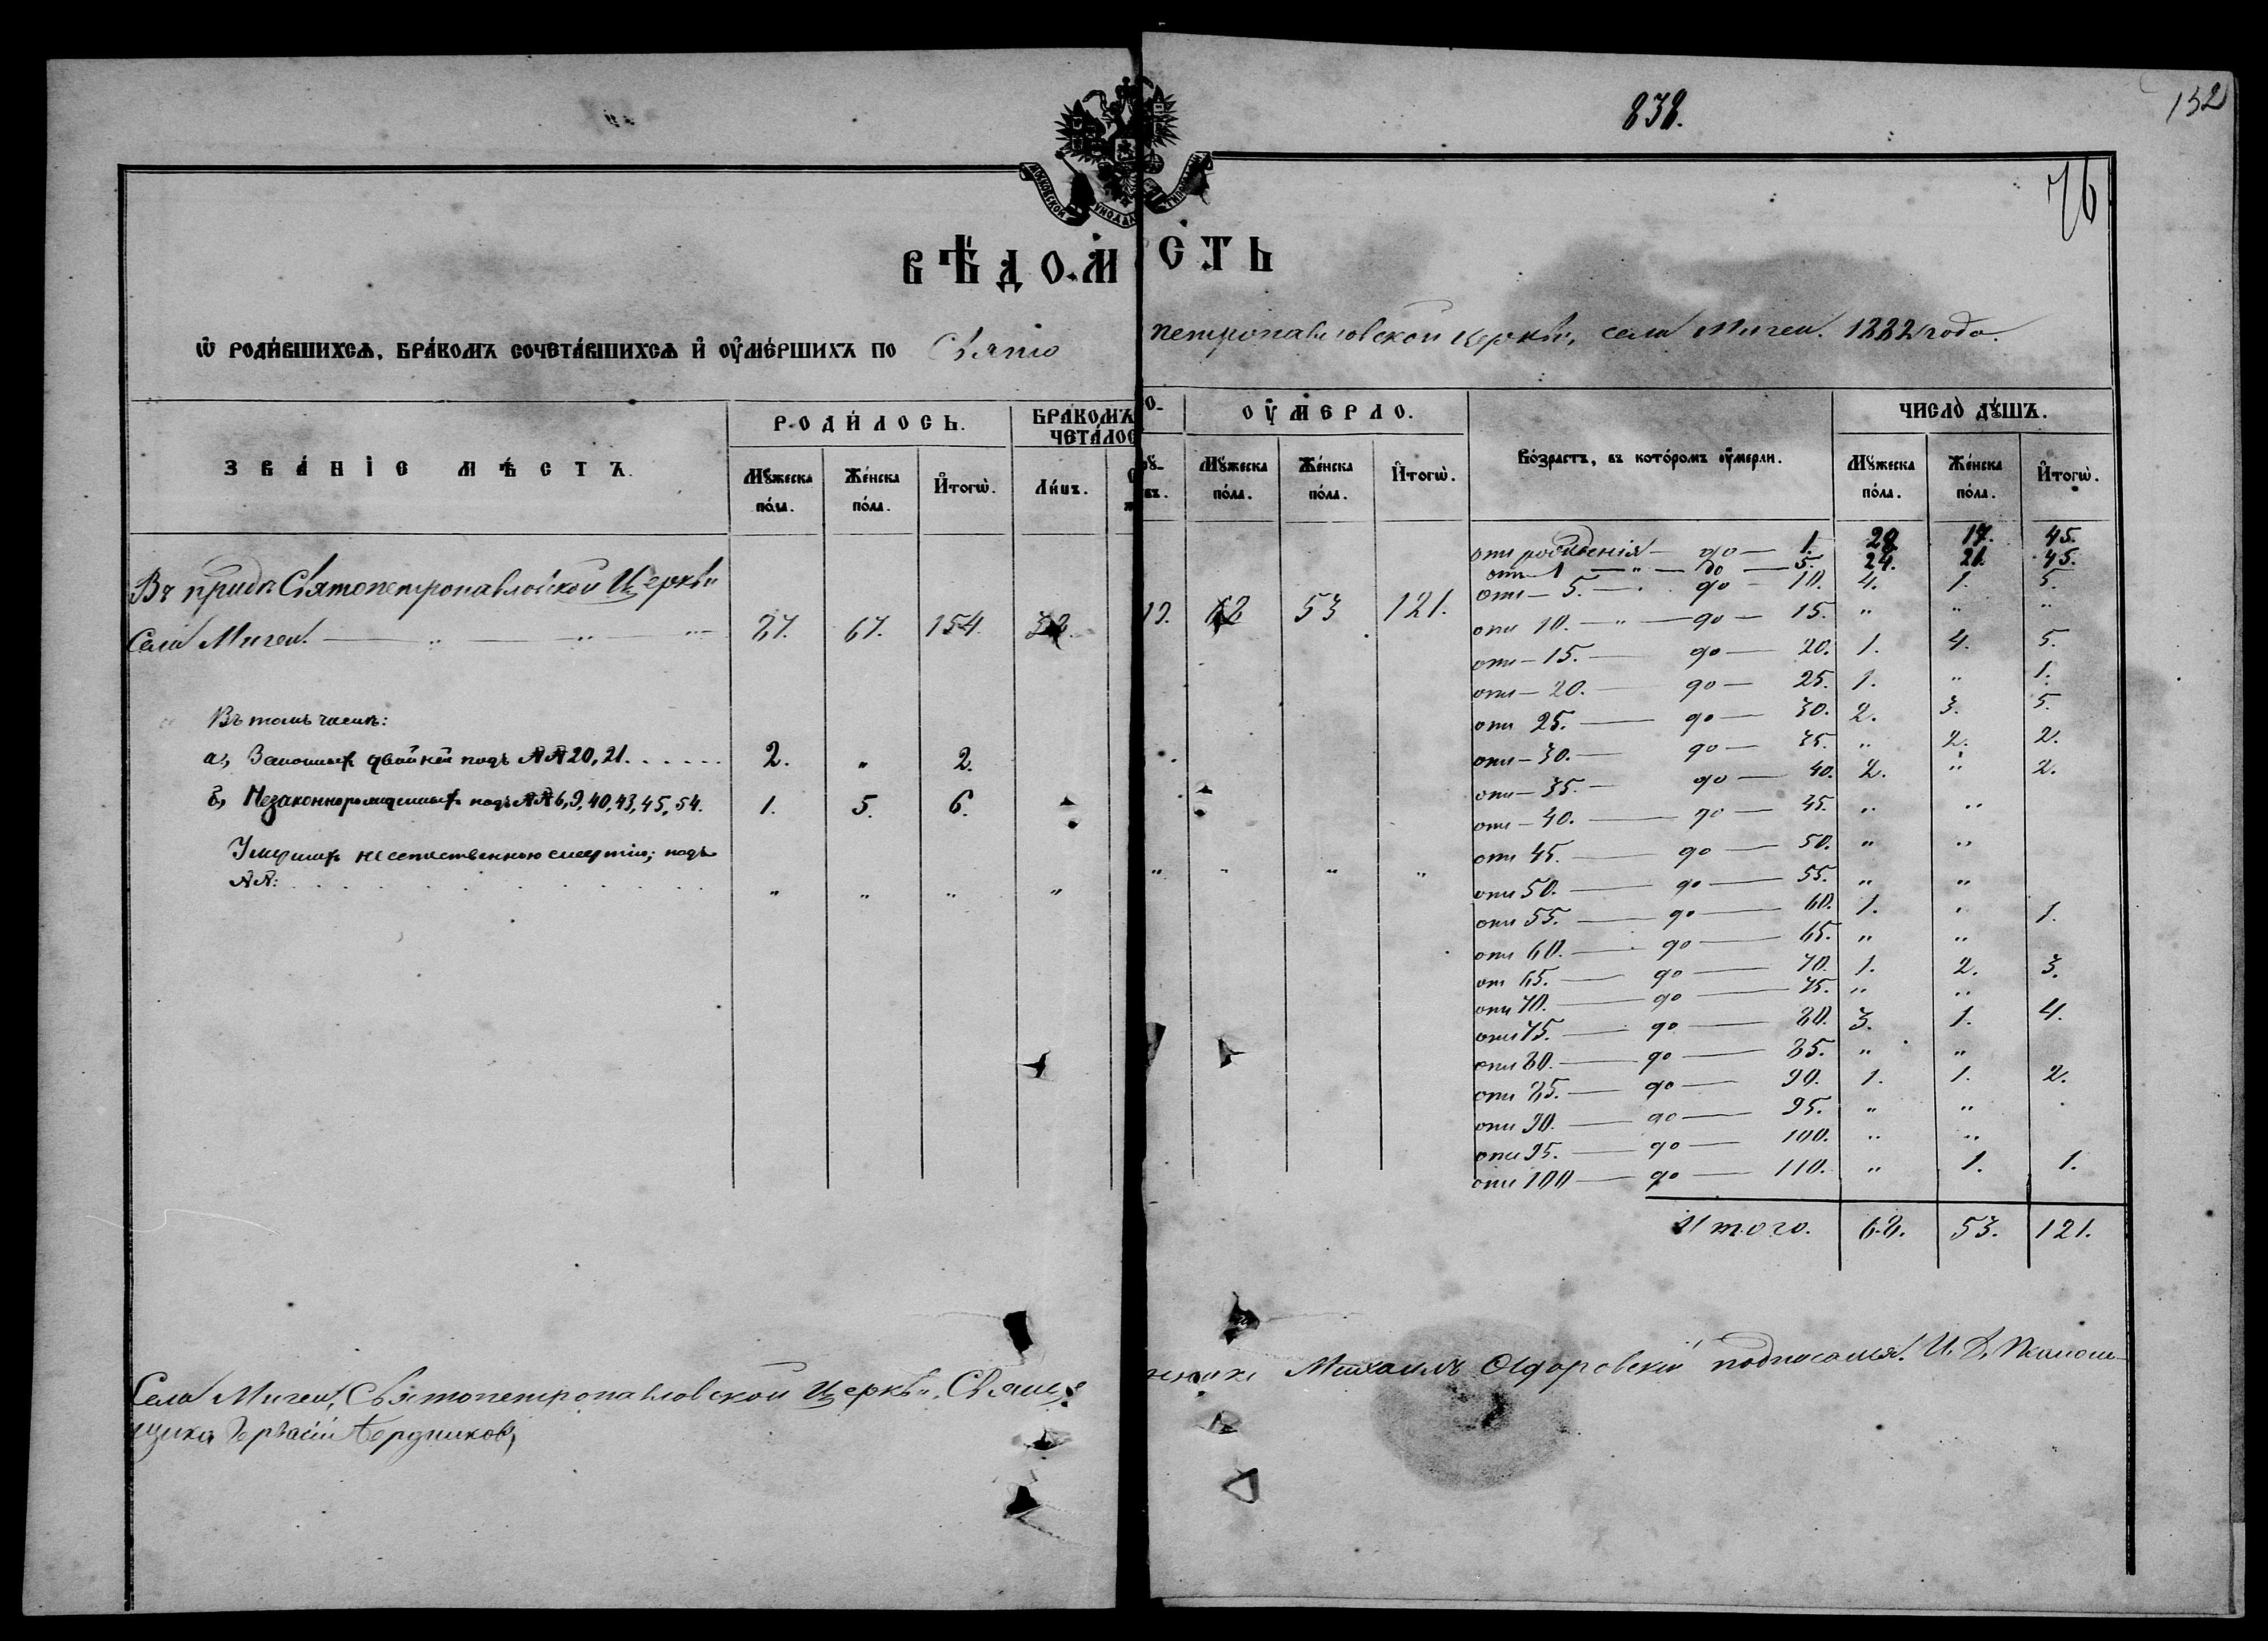 838.
132
76
ВѢДОМОСТЬ
Ѡ РОДИВШИХСѦ, БРАКОМЪ СОЧЕТАВШИХСѦ И ОУМЕРШИХЪ ПО Свято петропавловской церкви, села Мигеи. 1882 года.
ЗВАНІЕ МѢСТЪ.
РОДИЛОСЬ.
БРАКОМЪ СО-
ЧЕТАЛОСЬ
ОУМЕРЛО.
Возрастъ, въ которомъ оумерли.
ЧИСЛО ДꙊШЪ.
Мꙋжеска пола.
Женска пола.
Итогѡ.
Лицъ.
Мꙋжеска пола.
Женска пола.
Итогѡ.
Мꙋжеска пола.
Женска пола.
Итогѡ.
Въ приходѣ Святопетропавловской Церкви
Села Мигеи. 87. 67. 154. 38. 19. 68 53 121.
Въ томъ числѣ:
а, двойней подъ №№ 20, 21. 2. " 2.
б, Незаконнорожденныхъ подъ №№ 6, 9, 40, 43, 45, 54. 1. 5. 6.
Умершихъ неестественною смертію; подъ
№№: " " " " " " " "
отъ рожденія — до — 1. 28 17. 45.
отъ 1 — " — до — 5. 24. 21. 45.
отъ — 5. — до — 10. 4. 1. 5.
отъ 10. — " — до — 15. " " "
отъ — 15. — до — 20. 1. 4. 5.
отъ — 20. — до — 25. 1. " 1.
отъ 25. — до — 30. 2. 3. 5.
отъ — 30. — до — 35. " 2. 2.
отъ — 35. — до — 40. 2. " 2.
отъ — 40. — до — 45. " "
отъ 45. — до — 50. " "
отъ 50. — до — 55. " "
отъ 55. — до — 60. 1. " 1.
отъ 60. — до — 65. " "
отъ 65. — до — 70. 1. 2. 3.
отъ 70. — до — 75. " "
отъ 75. — до — 80. 3. 1. 4.
отъ 80. — до — 85. " "
отъ 85. — до — 90. 1. 1. 2.
отъ 90. — до — 95. " "
отъ 95. — до — 100. " "
отъ 100 — до — 110. " 1. 1.
Итого. 68. 53. 121.
Села Мигеи, Святопетропавловской Церкви, Священникъ Михаилъ подписался. И. Д. Псаломщика